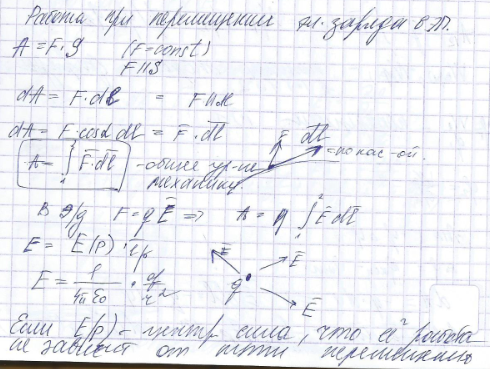 Работа при перемещении эл. заряда в
A = F·S (F=const)
F∥S
dA = F·dl = F∥dl
dA = F·cosα dl = F̄·dl̄
A = ∫₁² F̄·dl̄ - общее ур-ие
механики
F̄ dl̄ = по кас-ой.
В э/g F̄ = qĒ => A = q ∫₁² Ē dl̄
E = E(r)·
E = 1/4πε₀ · q/r²
q Ē Ē Ē
Если E(r) - центр сила, что работа
не зависит от пути перемещения